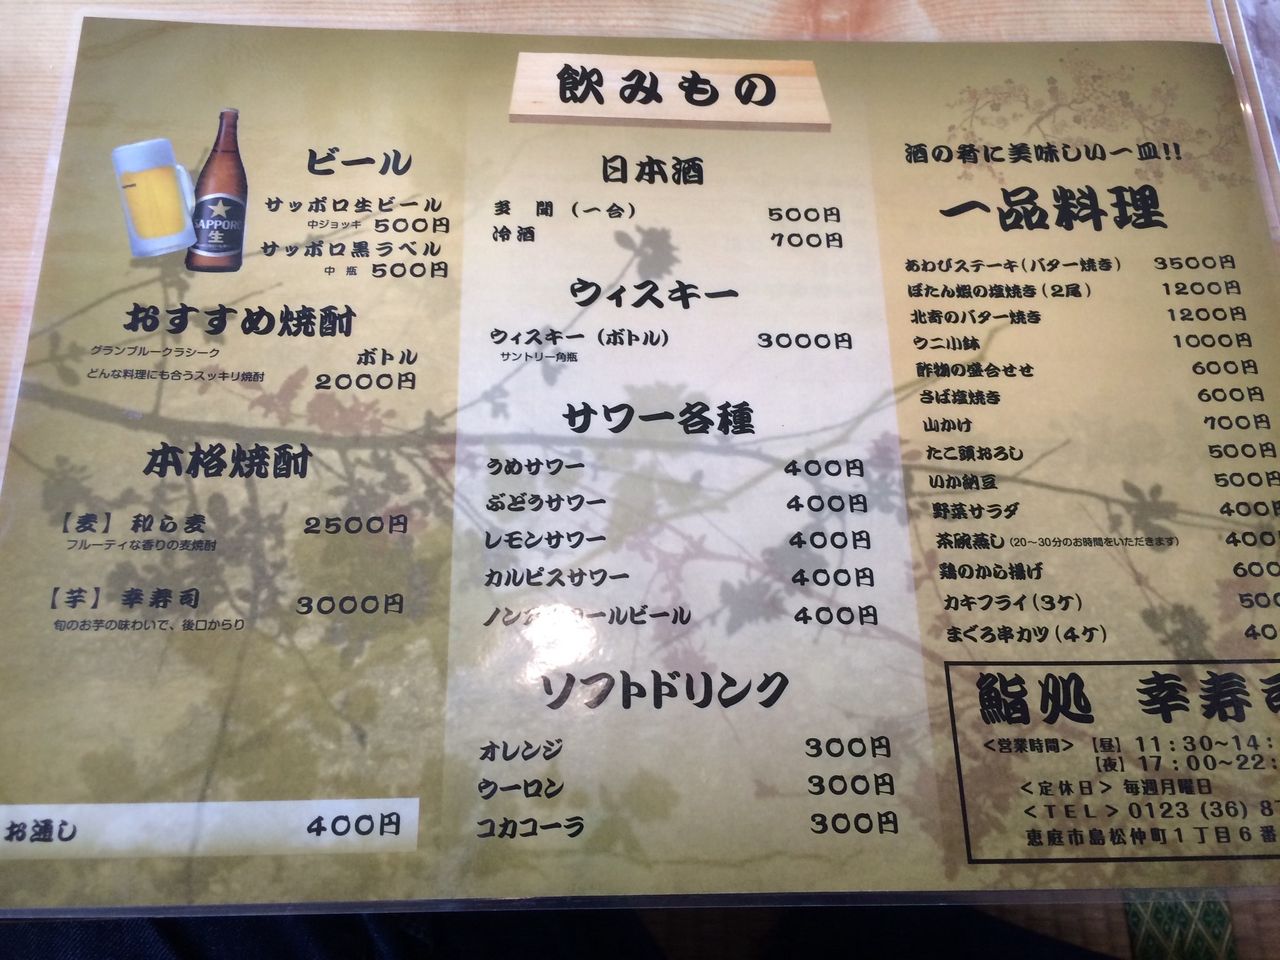 飲みもの
ビール
サッポロ生ビール
中ジョッキ 500円
サッポロ黒ラベル
中瓶 500円
SAPPORO
生
おすすめ焼酎
グランブルークラシーク
ボトル
どんな料理にも合うスッキリ焼酎 2000円
本格焼酎
【麦】 和ら麦 2500円
フルーティな香りの麦焼酎
【芋】 幸寿司 3000円
旬のお芋の味わいで、後口からり
お通し 400円
日本酒
多聞（一合） 500円
冷酒 700円
ウィスキー
ウィスキー（ボトル） 3000円
サントリー角瓶
サワー各種
うめサワー 400円
ぶどうサワー 400円
レモンサワー 400円
カルピスサワー 400円
ールビール 400円
ソフトドリンク
オレンジ 300円
ウーロン 300円
コカコーラ 300円
酒の肴に美味しい一皿!!
一品料理
あわびステーキ（バター焼き） 3500円
ぼたん蝦の塩焼き（2尾） 1200円
北寄のバター焼き 1200円
ウニ小鉢 1000円
酢物の盛合せせ 600円
さば塩焼き 600円
山かけ 700円
たこ頭おろし 500円
いか納豆 500円
野菜サラダ 400円
茶碗蒸し（20～30分のお時間をいただきます） 400
鶏のから揚げ 600
カキフライ（3ケ） 500
まぐろ串カツ（4ケ） 40
鮨処 幸寿司
＜営業時間＞ 【昼】 11：30～14：
【夜】 17：00～22：
＜定休日＞ 毎週月曜日
＜TEL＞ 0123 (36) 8
恵庭市島松仲町1丁目6番